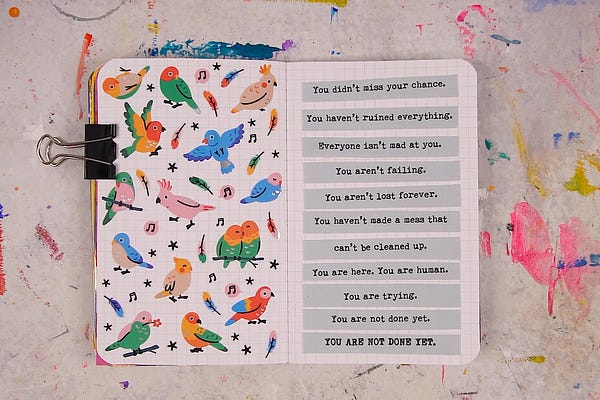 You didn't miss your chance.
You haven't ruined everything.
Everyone isn't mad at you.
You aren't failing.
You aren't lost forever.
You haven't made a mess that
can't be cleaned up.
You are here. You are human.
You are trying.
You are not done yet.
YOU ARE NOT DONE YET.